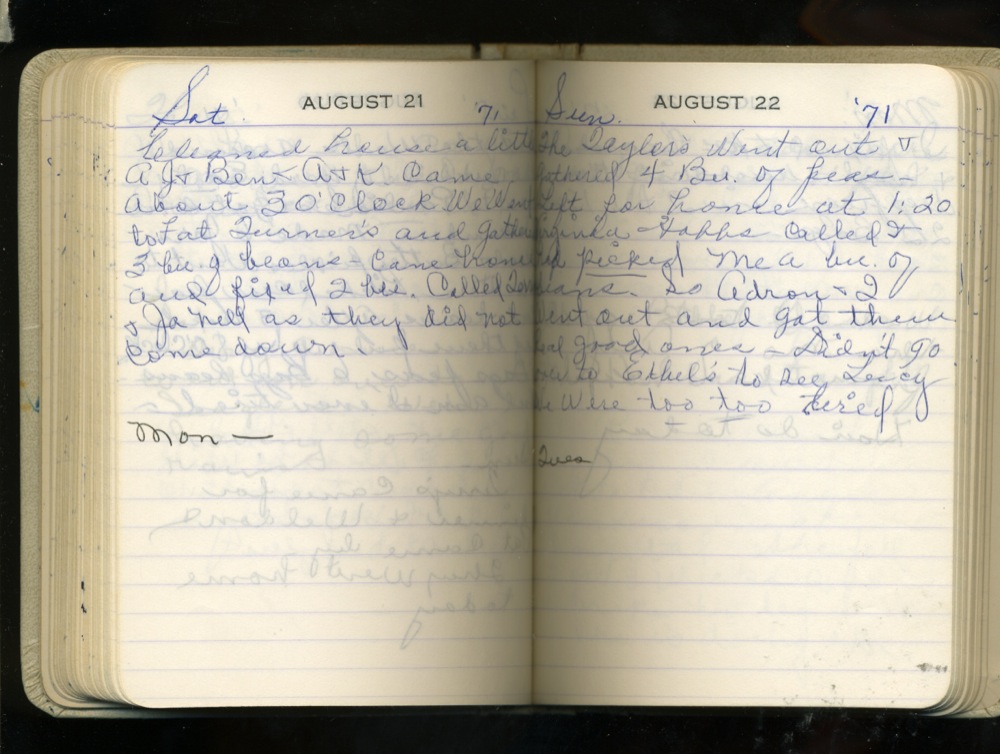 Sat. AUGUST 21 '71
Cleaned house a little
A J & Ben & A & K. Came
About 3 O'Clock We Went
to Fat Turner's and gather
3 bu. of beans - Came home
and fixed 2 bu. Called
& Ja Nell as they did not
come down.
Mon —
Sun. AUGUST 22 '71
The Taylors Went out &
gathered 4 Bu. of peas -
Left for home at 1:20
Called &
picked Me a bu. of
So Adron & I
Went out and got them
real good ones - Didn't go
over to Ethel's to see Leucy
We Were too too tired
Tues